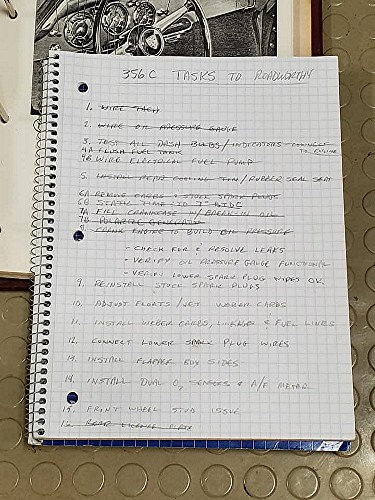 356C TASKS TO ROADWORTHY
1. WIRE TACH
2. WIRE OIL PRESSURE GAUGE
3. TEST ALL DASH BULBS/INDICATORS - CONNECT TO ENGINE
4A FLUSH FUEL TANK
4B WIRE ELECTRICAL FUEL PUMP
5. INSTALL REAR COOLING TIN/RUBBER SEAL SEAT
6A REMOVE CARBS & STOCK SPARK PLUGS
6B STATIC TIME TO 3° BTDC
7A FILL CRANKCASE W/BREAK-IN OIL
7B POLARIZE GENERATOR
8. CRANK ENGINE TO BUILD OIL PRESSURE
- CHECK FOR & RESOLVE LEAKS
- VERIFY OIL PRESSURE GAUGE FUNCTIONAL
- VERIFY LOWER SPARK PLUG WIRES OK.
9. REINSTALL STOCK SPARK PLUGS
10. ADJUST FLOATS/JET WEBER CARBS
11. INSTALL WEBER CARBS, LINKAGE & FUEL LINES
12. CONNECT LOWER SPARK PLUG WIRES
13. INSTALL FLAPPER BOX SIDES
14. INSTALL DUAL O2 SENSORS & A/F METER
15. FRONT WHEEL STUD ISSUE
16. REAR LICENSE PLATE